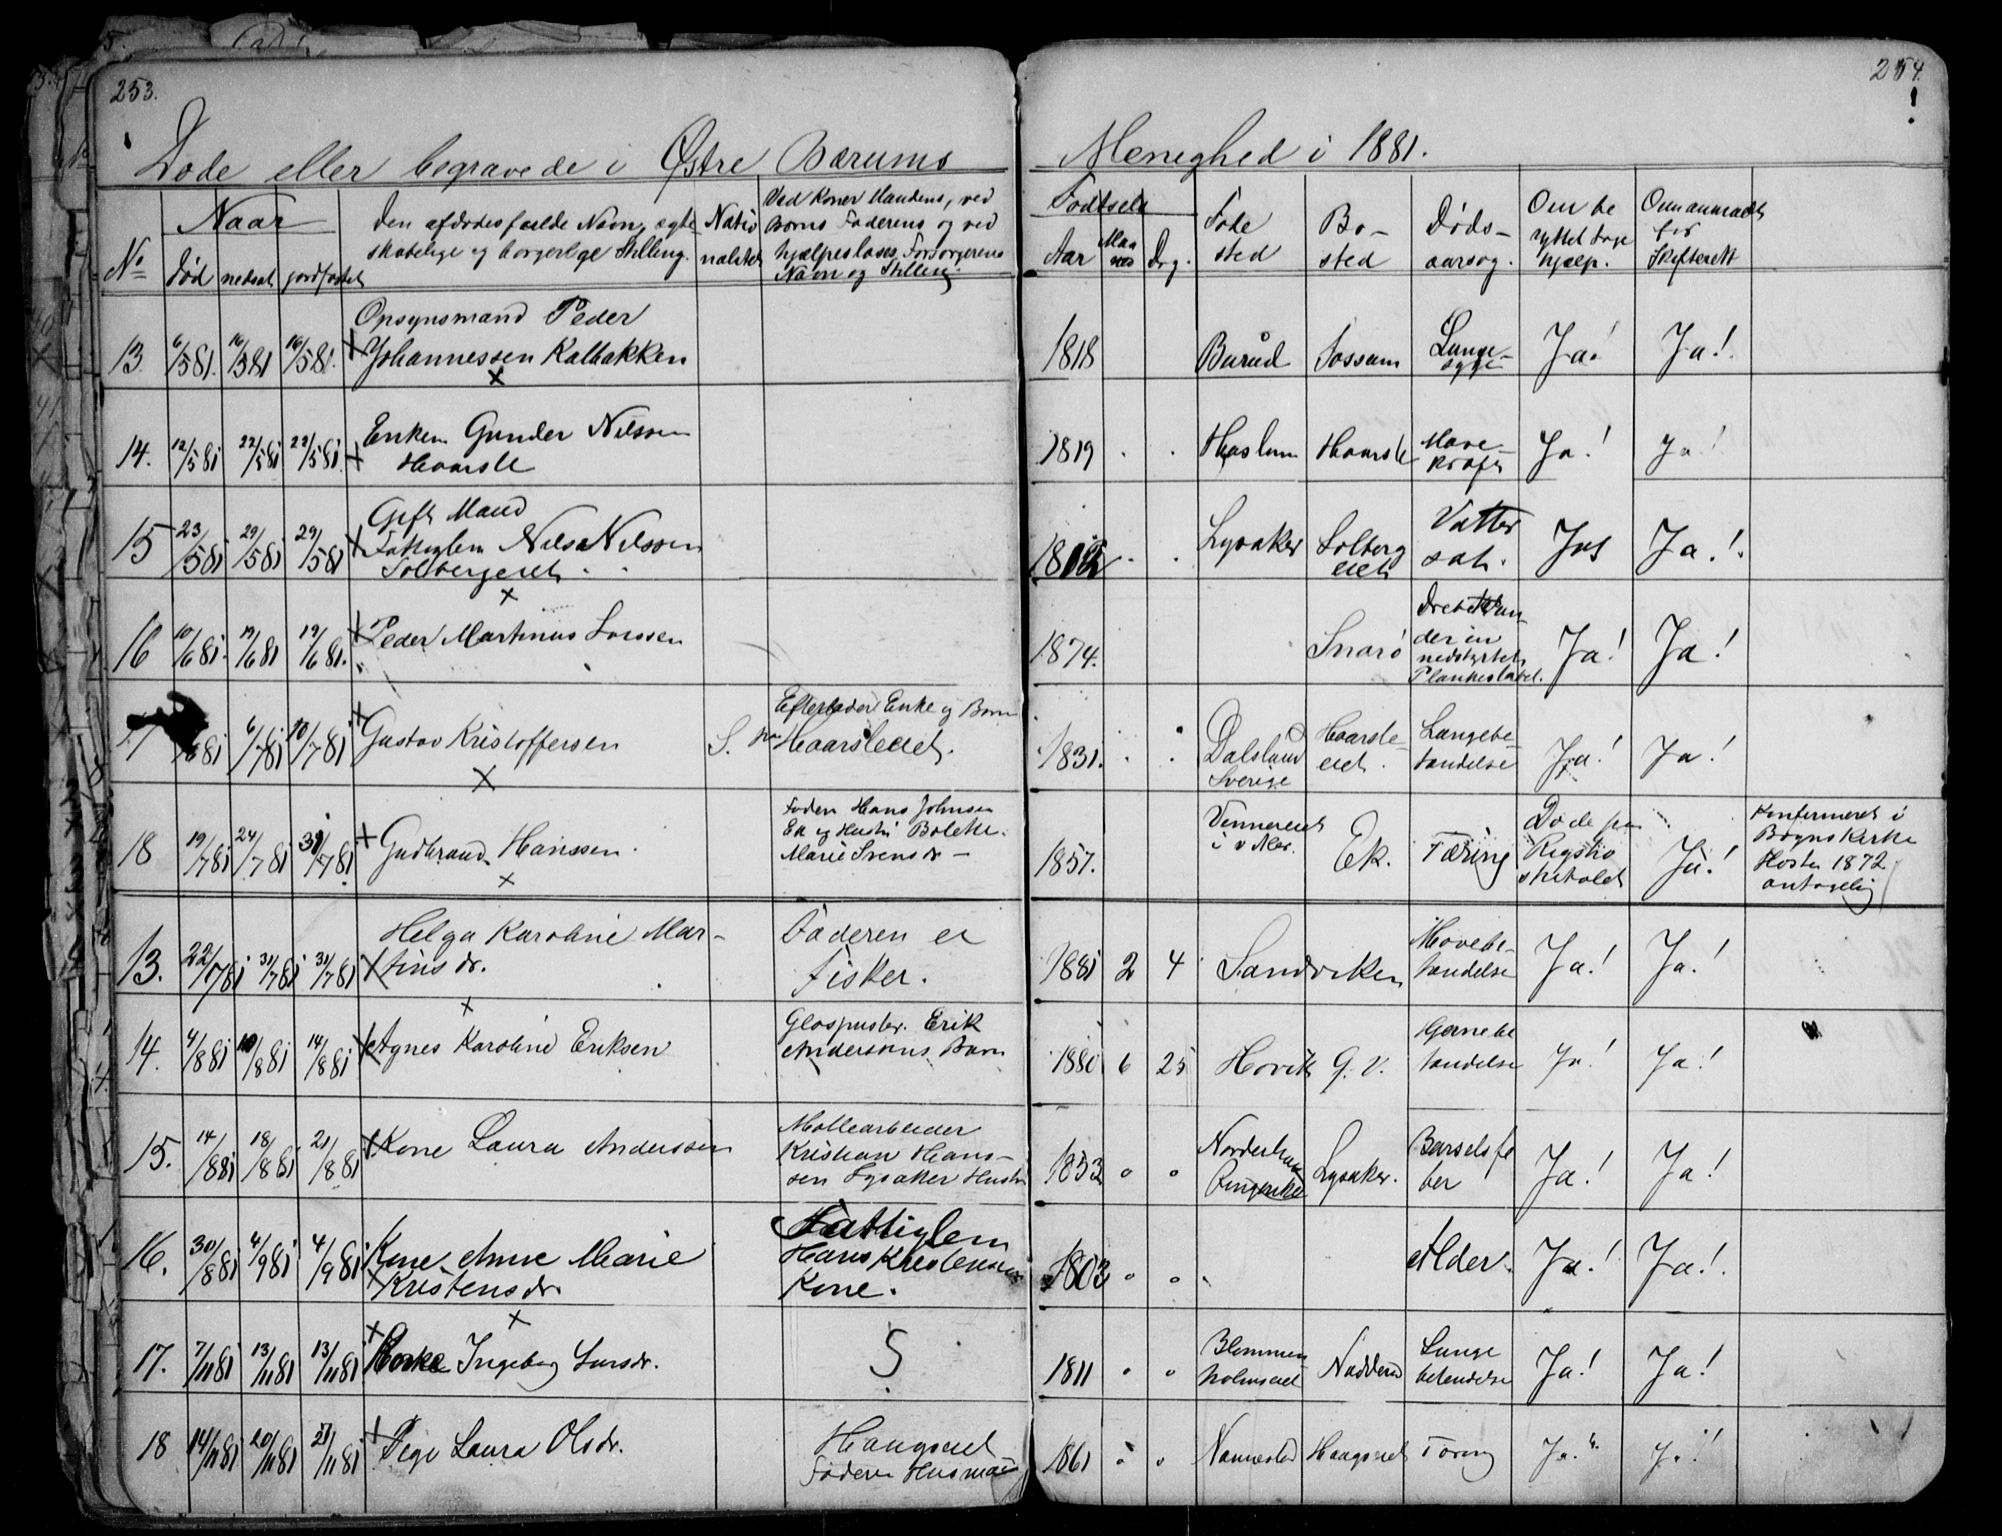 253.
254.
Døde eller begravede i Østre Bærums
Menighed i 1881.
No
Naar
død nedsat jordfæstet
Den afdødes fulde Navn, ægte-
skabelige og borgerlige Stilling.
Natio
nalitet
Ved Koner Mandens, ved
Børns Faderens og ved
hjælpesløses, Forsørgerens
Navn og Stilling.
Fødsels
Aar Maa
ned Dag.
Føde
sted
Bo-
sted
Døds-
aarsag.
Om be
nyttet Læge
hjælp.
Om anmeldt
for
Skifterett
13. 6/5 81. 16/5 81 16/5 81.
Opsynsmand Peder
Johannessen Kalbakken
1818 Bærud Fossum Lunge-
syge Ja! Ja!
14. 12/5 81 22/5 81 22/5 81.
Enken Gunder Nilssen
Haarsle
1819 Haslum Haarsle Mave-
kræft Ja! Ja!
15 23/5 81 29/5 81 29/5 81
Gift Mand
Fattiglem Nils Nilssen
Solbergeiet
Lysaker Solberg
eiet Vatter
sot. Ja! Ja!
16 10/6 81. 19/6 81 19/6 81.
Peder Martinus Larssen
1874. Snarø
der en
nedstyrtet
Plankestabel. Ja! Ja!
/6 81 6/7 81 10/7 81
Gustav Kristoffersen
S.
Efterlader Enke og Børn
Haarsleeiet.
1831. Dalsland
Sverige Haarsle-
eiet. Lungebe-
tændelse Ja! Ja!
18 19/7 81 24/7 81 31/7 81
Gudbrand Hanssen.
Faden Hans Johnsen
Ek og Hustru Bolette
Marie Svensdr
1857. Ek. Tæring Døde paa
Rigsho
spitalet Ja! Konfirmeret i
Bogns Kirke
Høsten 1872
antagelig
13. 22/7 81 31/7 81 31/7 81
Helga Karoline Mar-
tinsdr.
Faderen er
Fisker.
1881 2 4 Sandviken Mavebe-
tændelse Ja! Ja!
14. 4/8 81 10/8 81 14/8 81
Agnes Karoline Eriksen
Glaspuster. Erik
Anderssens Barn
1880 6 25 Høvik G. V. Hjernebe
tændelse Ja! Ja!
15. 14/8 81 18/8 81 21/8 81
Kone Laura Anderssen
Møllearbeider
Kristian Hans-
sen Lysaker Hustru
1853 Norderhov
Ringerike Lysaker. Barselsfe
ber Ja! Ja!
16. 30/8 81 4/9 81 4/9 81
Kone Anne Marie
Kristensdr.
Fattiglem
Hans Kristensens
Kone.
1803 Alder. Ja! Ja!
17. 7/11 81 13/11 81 13/11 81
Enke Ingeborg Larsdr.
S
1811 Blommen
holmseiet Nadderud Lunge
betendelse Ja! Ja!
18 14/11 81 20/11 81 21/11 81
Pige Laura Olsdr.
Haugseiet
Faderen Husmand
1861 Nannestad Haugseiet Tæring Ja! Ja!